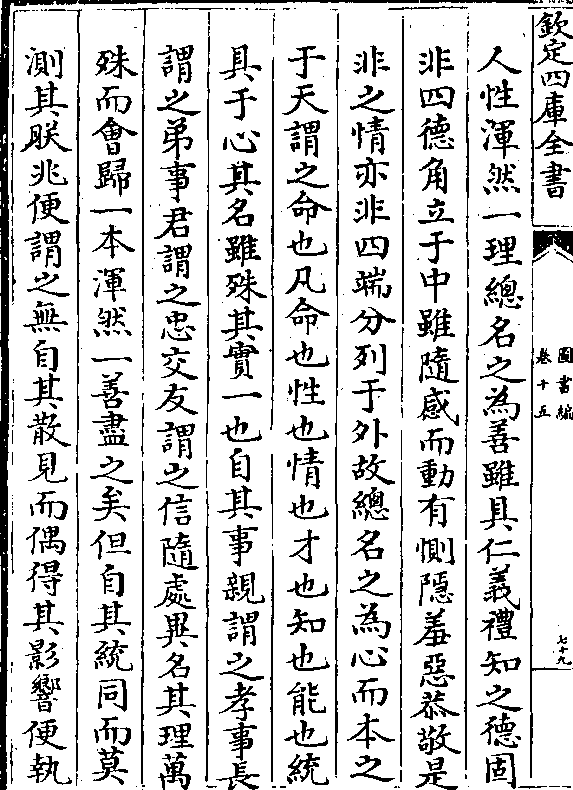 欽定四庫全書
圖書編
卷十五
七十九
人性渾然一理總名之為善雖具仁義禮知之德固
非四德角立于中雖隨感而動有惻隱羞惡恭敬是
非之情亦非四端分列于外故總名之為心而本之
于天謂之命也凡命也性也情也才也知也能也統
具于心其名雖殊其實一也自其事親謂之孝事長
謂之弟事君謂之忠交友謂之信隨處異名其理萬
殊而會歸一本渾然一善盡之矣但自其統同而莫
測其朕兆便謂之無自其散見而偶得其影響便執